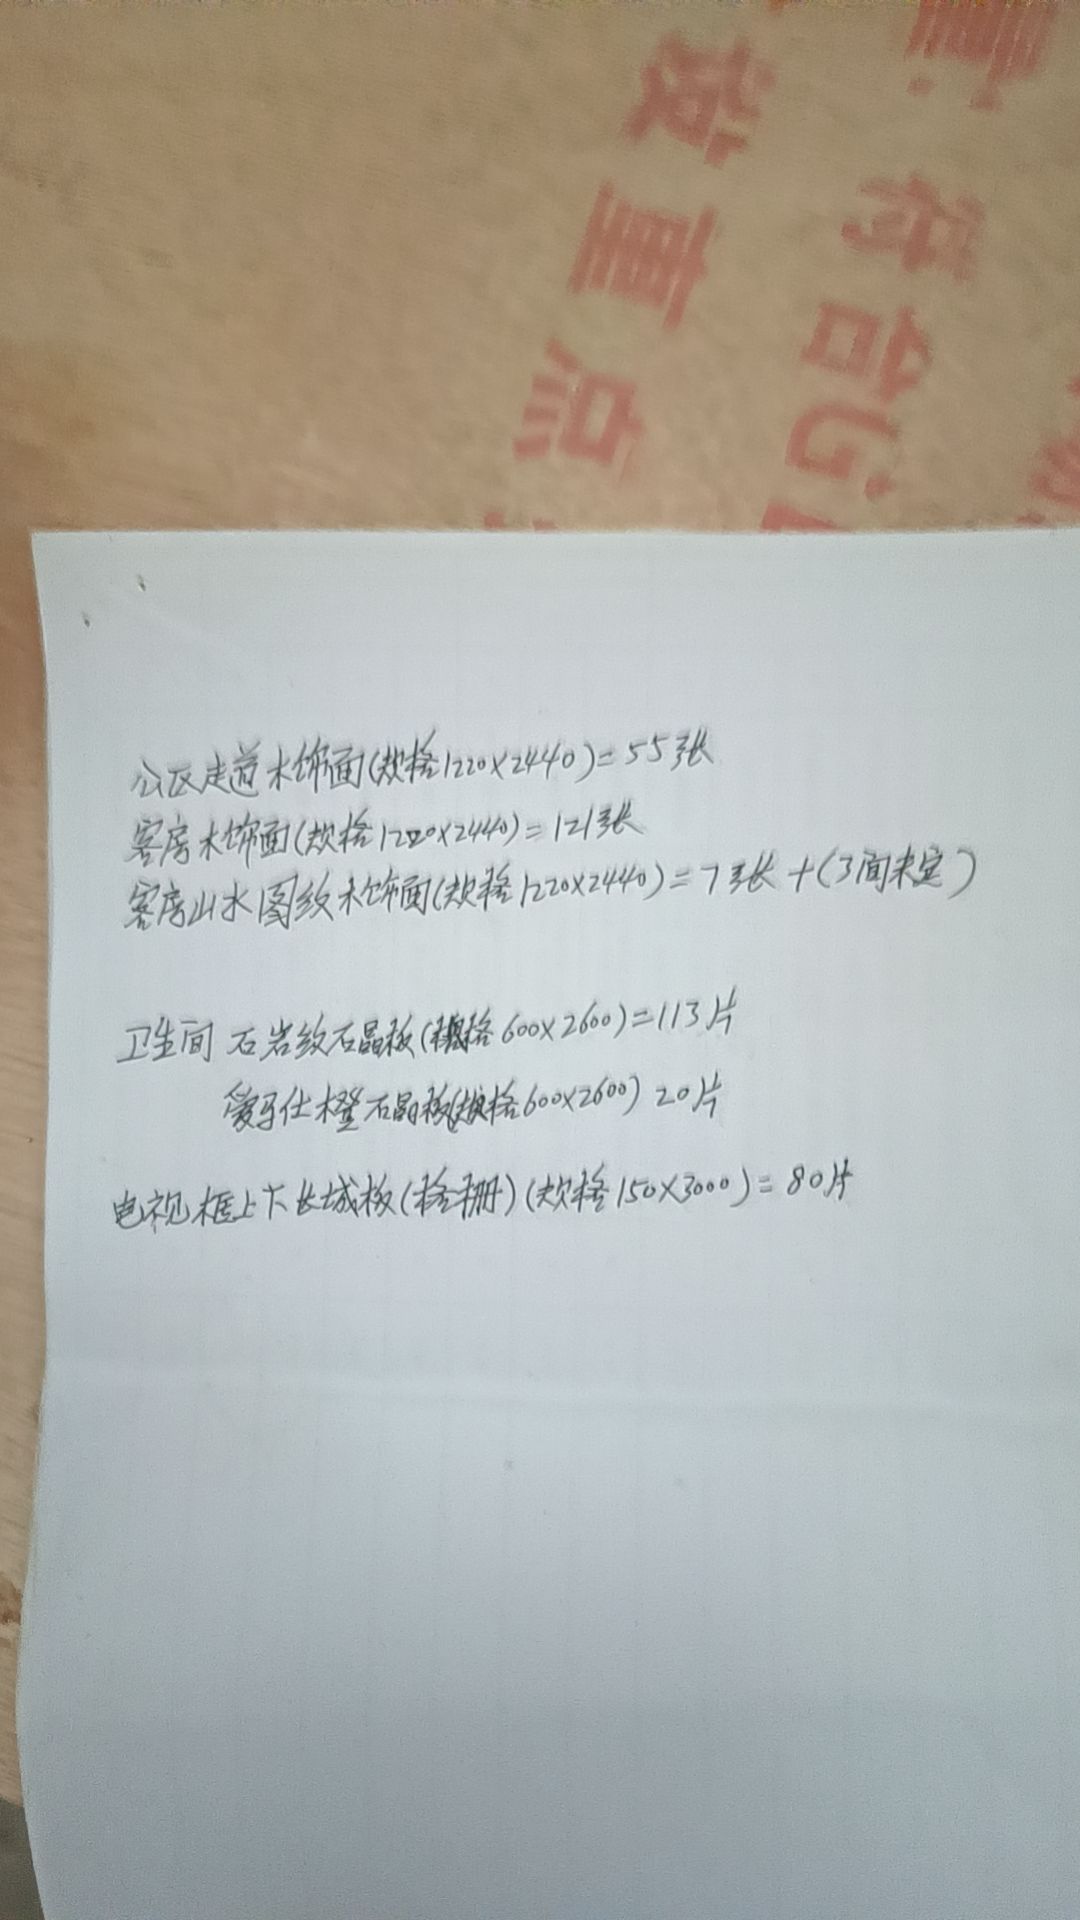 按
重
点
符
合
公区走道木饰面(规格1220×2440)=55张
客房木饰面(规格1220×2440)=121张
客房山水图纹木饰面(规格1220×2440)=7张+(3间未定)
卫生间 石岩纹石晶板(规格600×2600)=113片
爱马仕橙石晶板(规格600×2600) 20片
电视框上下长城板(格栅)(规格150×3000)=80片